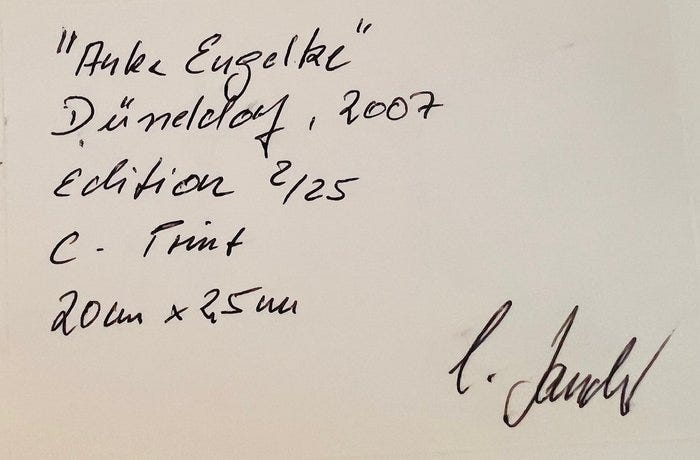 "Anke Engelke"
Düsseldorf, 2007
Edition 2/25
C - Print
20cm x 25cm